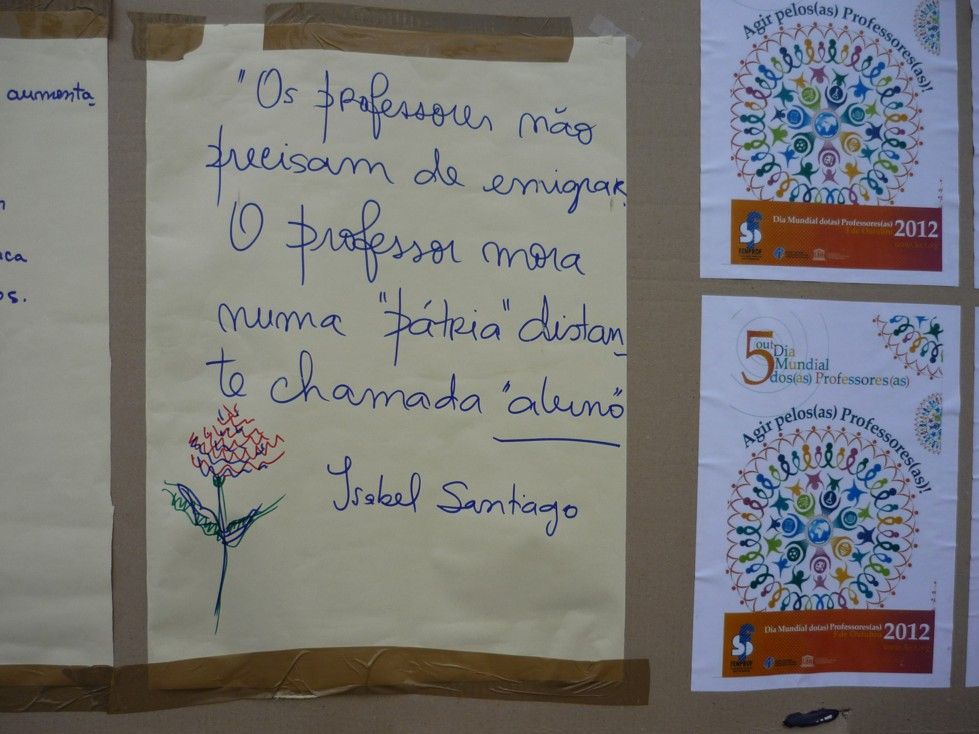 aumenta
os.
"Os professores não
precisam de emigrar.
O professor mora
numa "pátria" distan-
te chamada "aluno"
Isabel Santiago
Agir pelos(as) Professores(as)!
Dia Mundial do(as) Professores(as)
5 de Outubro
2012
FENPROF
5 out Dia
Mundial
dos(as) Professores(as)
Agir pelos(as) Professores(as)!
Dia Mundial do(as) Professores(as)
5 de Outubro
2012
FENPROF